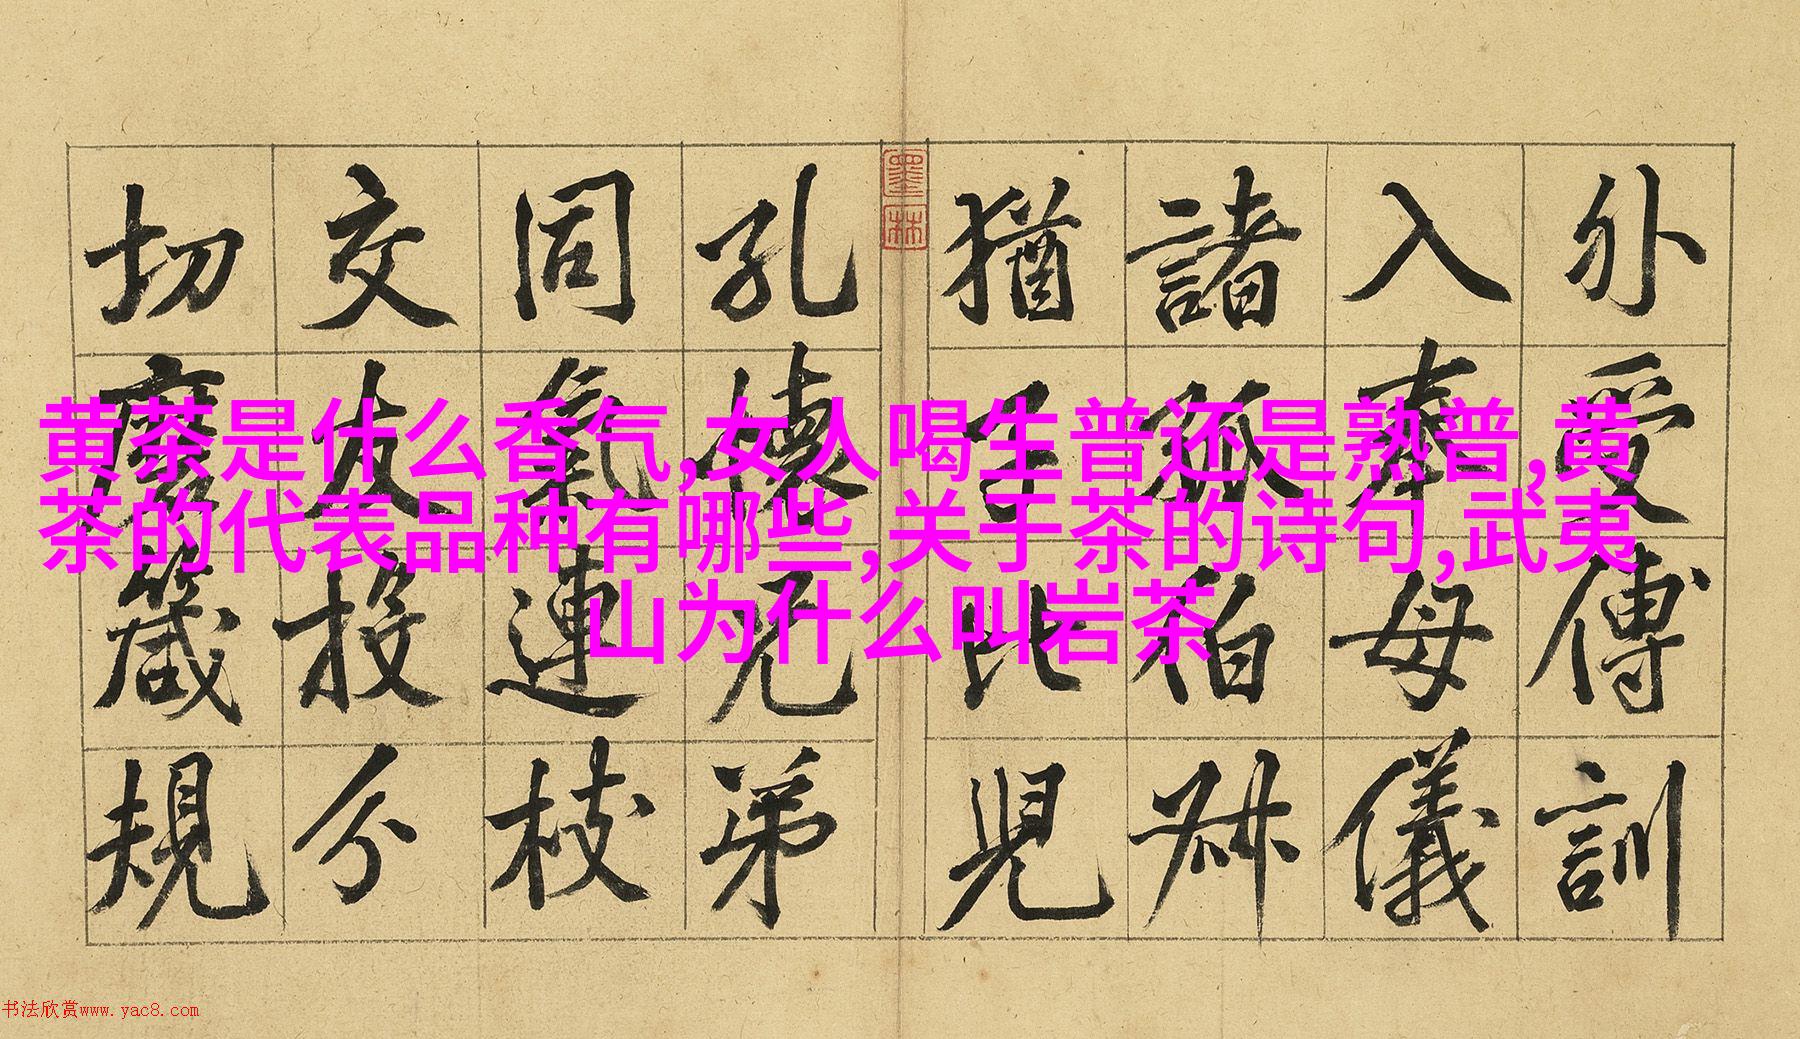 外受傅訓
入奉母儀
諸姑伯叔
猶子比兒
墨林
孔懷兄弟
同氣連枝
交友投分
切磨箴規
黄茶是什么香气,女人喝生普还是熟普,黄
茶的代表品种有哪些,关于茶的诗句,武夷
山为什么叫岩茶
书法欣赏www.yac8.com